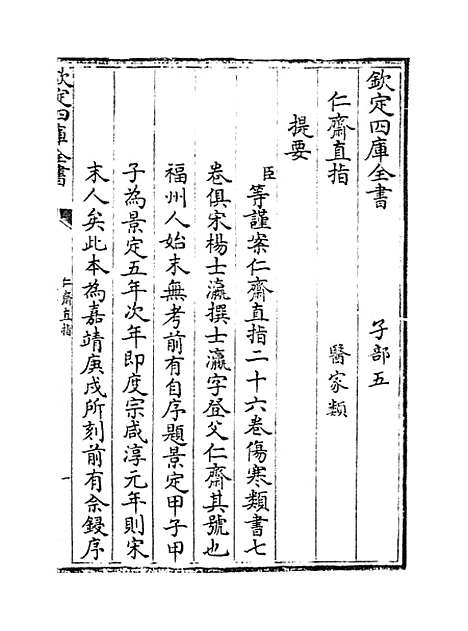 欽定四庫全書　　　子部五
仁齋直指　　　　　醫家類
提要
臣等謹案仁齋直指二十六卷傷寒類書七
卷俱宋楊士瀛撰士瀛字登父仁齋其號也
福州人始末無考前有自序題景定甲子甲
子為景定五年次年即度宗咸淳元年則宋
末人矣此本為嘉靖庚戌所刻前有佘鋟序
欽定四庫全書
仁齋直指
一